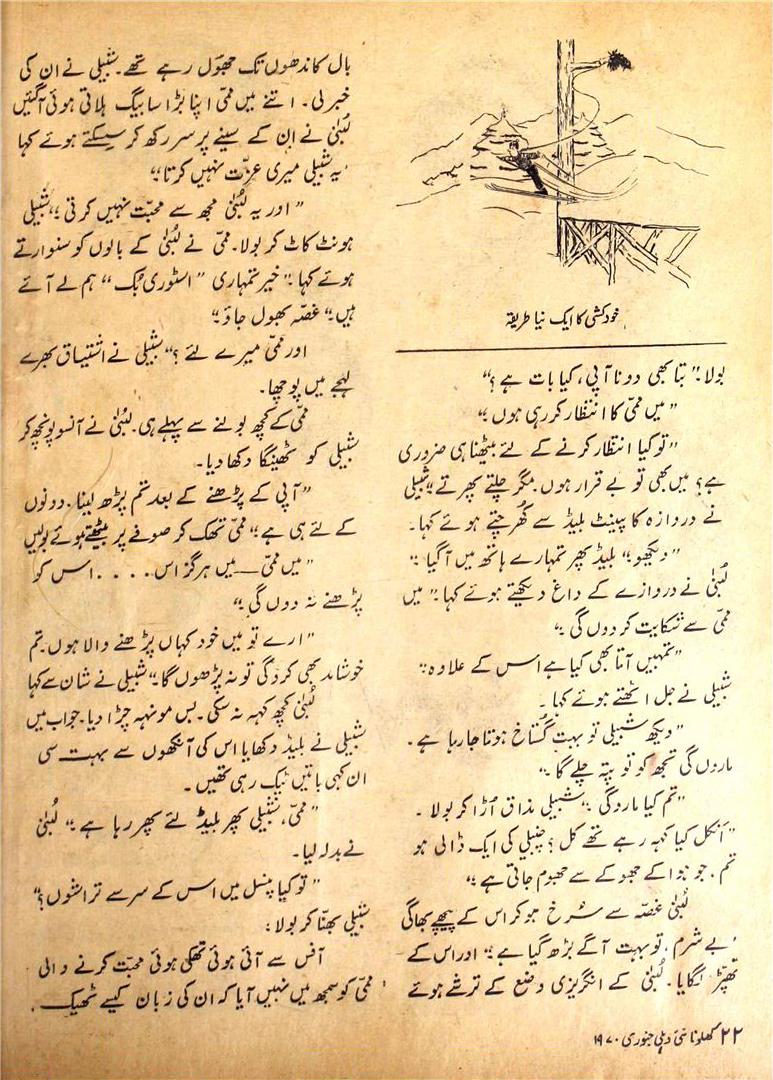 خودکشی کا ایک نیا طریقہ
بولا۔" بتا بھی دو نا آپی، کیا بات ہے؟"
"میں ممّی کا انتظار کر رہی ہوں۔"
"تو کیا انتظار کرنے کے لئے بیٹھنا ہی ضروری
ہے؟ میں بھی تو بے قرار ہوں۔ مگر چلتے پھرتے" شبیلی
نے دروازہ کا پینٹ بلیڈ سے کُھرچتے ہوئے کہا۔
"دیکھو" بلیڈ پھر تمہارے ہاتھ میں آ گیا۔"
لُبنیٰ نے دروازے کے داغ دیکھتے ہوئے کہا۔" میں
ممّی سے شکایت کر دوں گی۔"
"تمہیں آتا بھی کیا ہے اس کے علاوہ"
شبیلی نے جل اٹھتے ہوئے کہا۔
"دیکھ شبیلی تو بہت گستاخ ہوتا جا رہا ہے۔
ماروں گی تجھ کو تو پتہ چلے گا۔"
"تم کیا مارو گی۔" شبیلی مذاق اُڑا کر بولا۔
"اَنکل کیا کہہ رہے تھے کل؟ چنبیلی کی ایک ڈالی ہو
تم۔ جو ہوا کے جھوکے سے جھوم جاتی ہے"
لُبنیٰ غصّہ سے سُرخ ہو کر اس کے پیچھے بھاگی
'بے شرم، تو بہت آگے بڑھ گیا ہے" اور اس کے
تھپّڑ لگایا۔ لُبنیٰ کے انگریزی وضع کے ترشے ہوئے
بال کاندھوں تک جھوٗل رہے تھے۔ شبیلی نے ان کی
خبر لی۔ اتنے میں ممّی اپنا بڑا سا بیگ ہلاتی ہوئی آ گئیں
لُبنیٰ نے ان کے سینے پر سر رکھ کر سسکتے ہوئے کہا
'یہ شبیلی میری عزّت نہیں کرتا"
"اور یہ لُبنیٰ مجھ سے محبّت نہیں کرتی" شبیلی
ہونٹ کاٹ کر بولا۔ ممّی نے لُبنیٰ کے بالوں کو سنوارتے
ہوئے کہا۔" خیر تمہاری "اسٹوری بُک" ہم لے آئے
ہیں" غصّہ بھول جاؤ۔"
اور ممّی میرے لئے؟" شبیلی نے اشتیاق بھرے
لہجے میں پوچھا۔
ممّی کے کچھ بولنے سے پہلے ہی۔ لُبنیٰ نے آنسو پونچھ کر
شبیلی کو ٹھینگا دکھا دیا۔
"آپی کے پڑھنے کے بعد تم پڑھ لینا۔ دونوں
کے لئے ہی ہے" ممّی تھک کر صوفے پر بیٹھتے ہوئے بولیں
"میں ممّی — میں ہرگز اس.... اس کو
پڑھنے نہ دوں گی۔"
"ارے تو میں خود کہاں پڑھنے والا ہوں۔ تم
خوشامد بھی کرو گی تو نہ پڑھوں گا" شبیلی نے شان سے کہا
لُبنیٰ کچھ کہہ نہ سکی۔ بس مونہہ چڑا دیا۔ جواب میں
شبیلی نے بلیڈ دکھایا اس کی آنکھوں سے بہت سی
ان کہی باتیں ٹپک رہی تھیں۔
"ممّی، شبیلی پھر بلیڈ لئے پھر رہا ہے" لُبنیٰ
نے بدلہ لیا۔
"تو کیا پنسل میں اس کے سر سے تراشوں؟"
شبیلی بھنّا کر بولا۔
آفس سے آئی ہوئی تھکی ہوئی محبّت کرنے والی
ممّی کو سمجھ میں نہیں آیا کہ ان کی زبان کیسے ٹھیک
۲۲ کھلونا نئی دہلی جنوری ۱۹۷۰